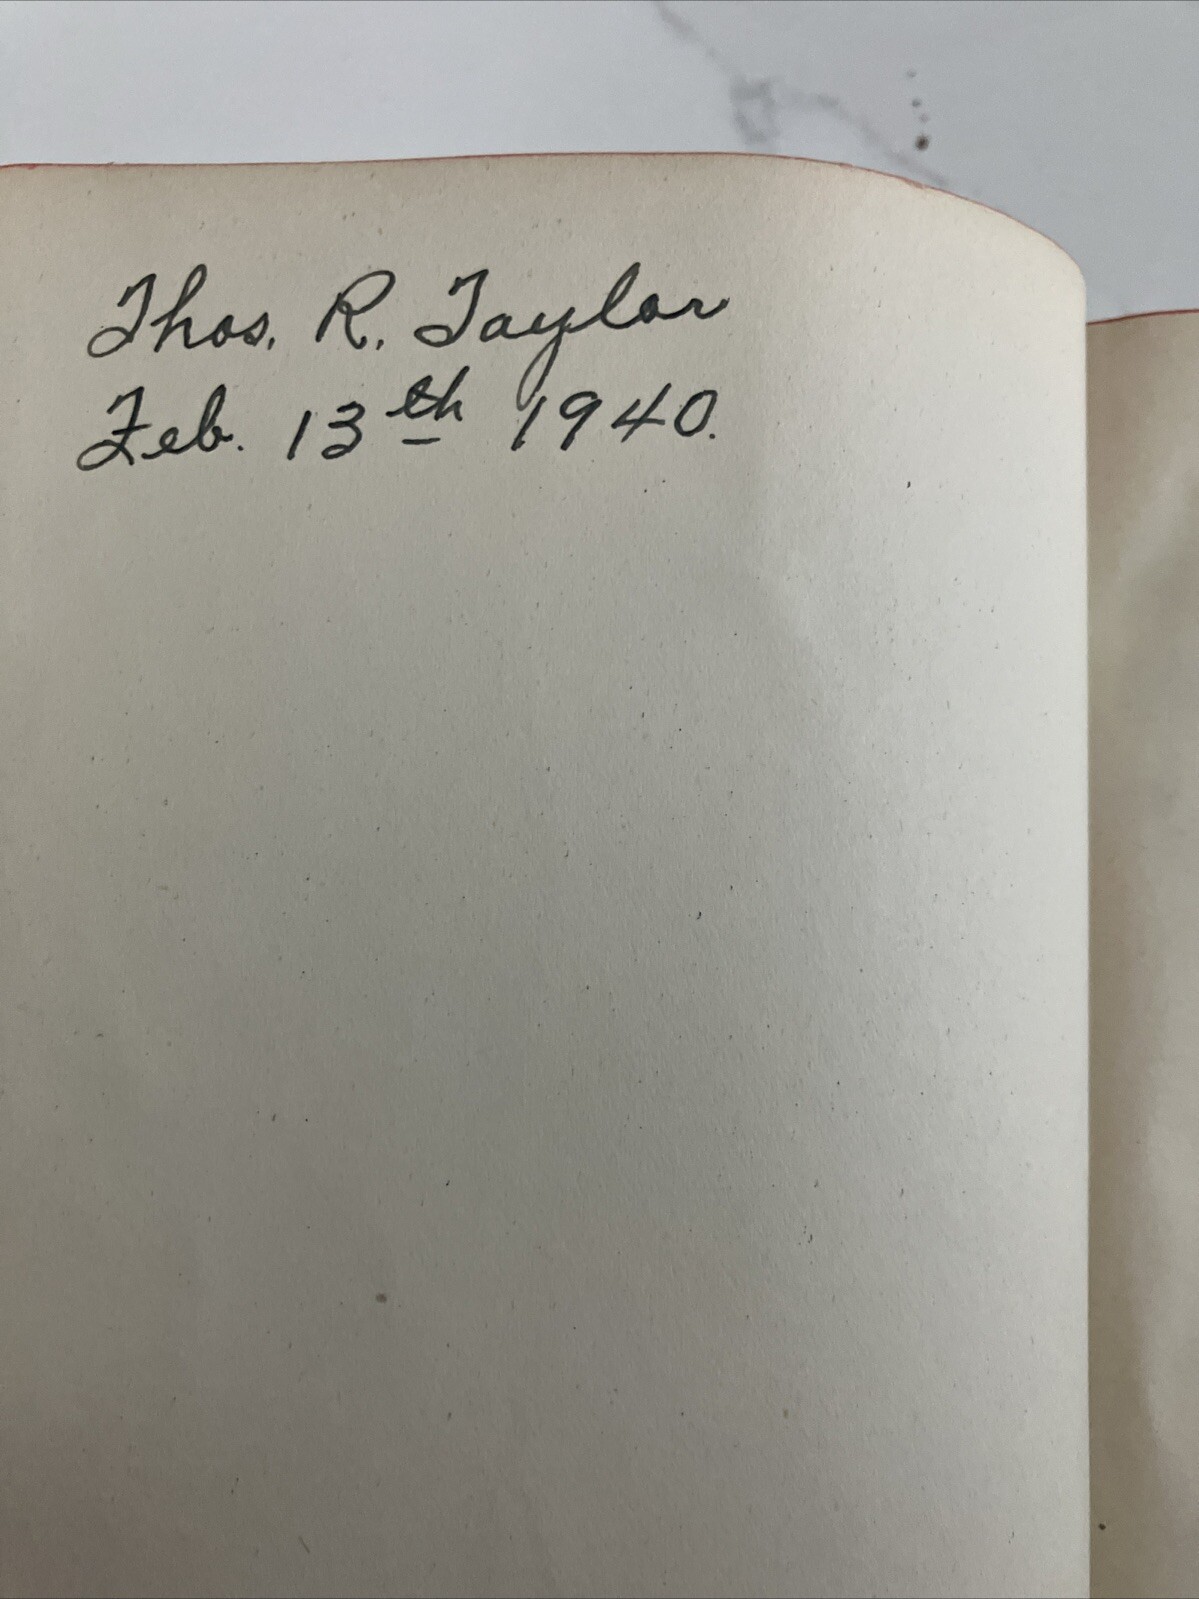 Thos. R. Taylor
Feb. 13th 1940.